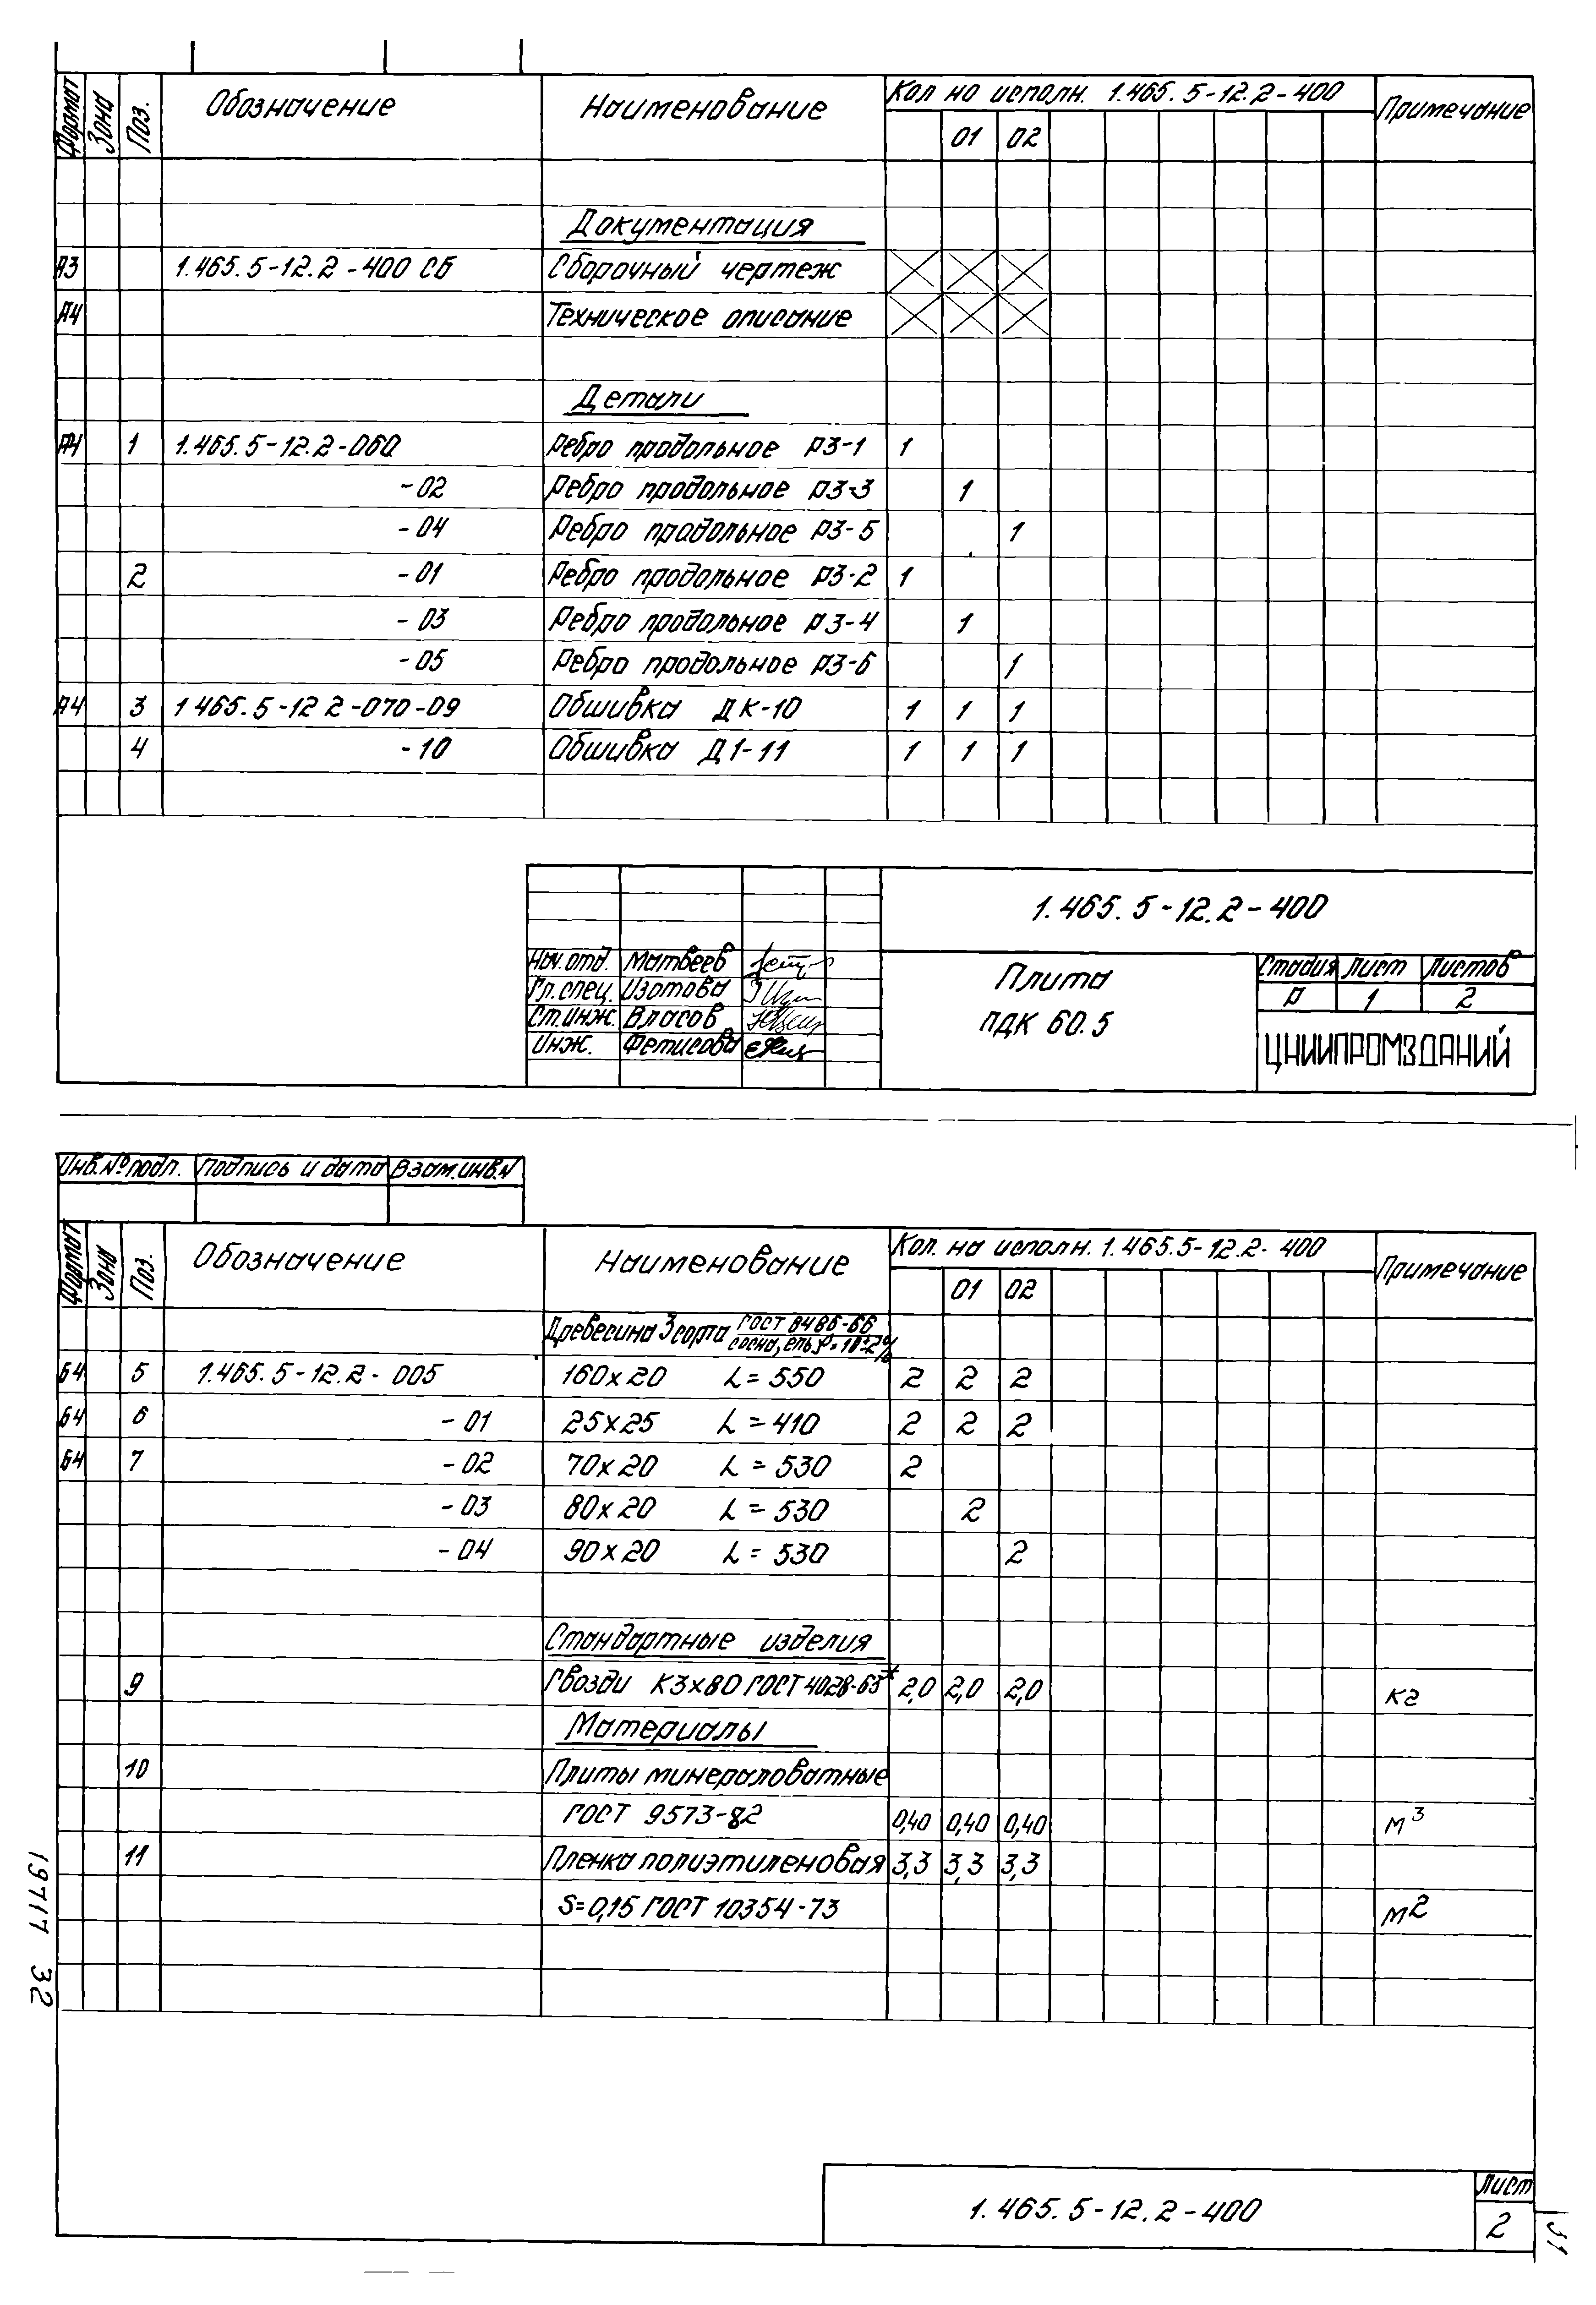 Формат Зона Поз. Обозначение Наименование Кол. на исполн. 1.465.5-12.2-400 Примечание
01 02
Документация
А3 1.465.5-12.2-400 СБ Сборочный чертеж
А4 Техническое описание
Детали
А4 1 1.465.5-12.2-060 Ребро продольное Р3-1 1
-02 Ребро продольное Р3-3 1
-04 Ребро продольное Р3-5 1
2 -01 Ребро продольное Р3-2 1
-03 Ребро продольное Р3-4 1
-05 Ребро продольное Р3-6 1
А4 3 1.465.5-12.2-070-09 Обшивка ДК-10 1 1 1
4 -10 Обшивка Д1-11 1 1 1
1.465.5-12.2-400
Нач.отд. Матвеев
Гл.спец. Изотова
Ст.инж. Власов
Инж. Фетисова
Плита
ПДК 60.5
Стадия Лист Листов
Р 1 2
ЦНИИПРОМЗДАНИЙ
Инв.№ подп. Подпись и дата Взам.инв.№
Формат Зона Поз. Обозначение Наименование Кол. на исполн. 1.465.5-12.2-400 Примечание
01 02
Древесина 3 сорта ГОСТ 8486-66
сосна, ель
Б4 5 1.465.5-12.2-005 160×20 L=550 2 2 2
Б4 6 -01 25×25 L=410 2 2 2
Б4 7 -02 70×20 L=530 2
-03 80×20 L=530 2
-04 90×20 L=530 2
Стандартные изделия
9 Гвозди К3×80 ГОСТ 4028-63* 2,0 2,0 2,0 кг
Материалы
10 Плиты минераловатные
ГОСТ 9573-82 0,40 0,40 0,40 м³
11 Пленка полиэтиленовая 3,3 3,3 3,3
S=0,15 ГОСТ 10354-73 м2
19717 32
1.465.5-12.2-400
Лист
2
31